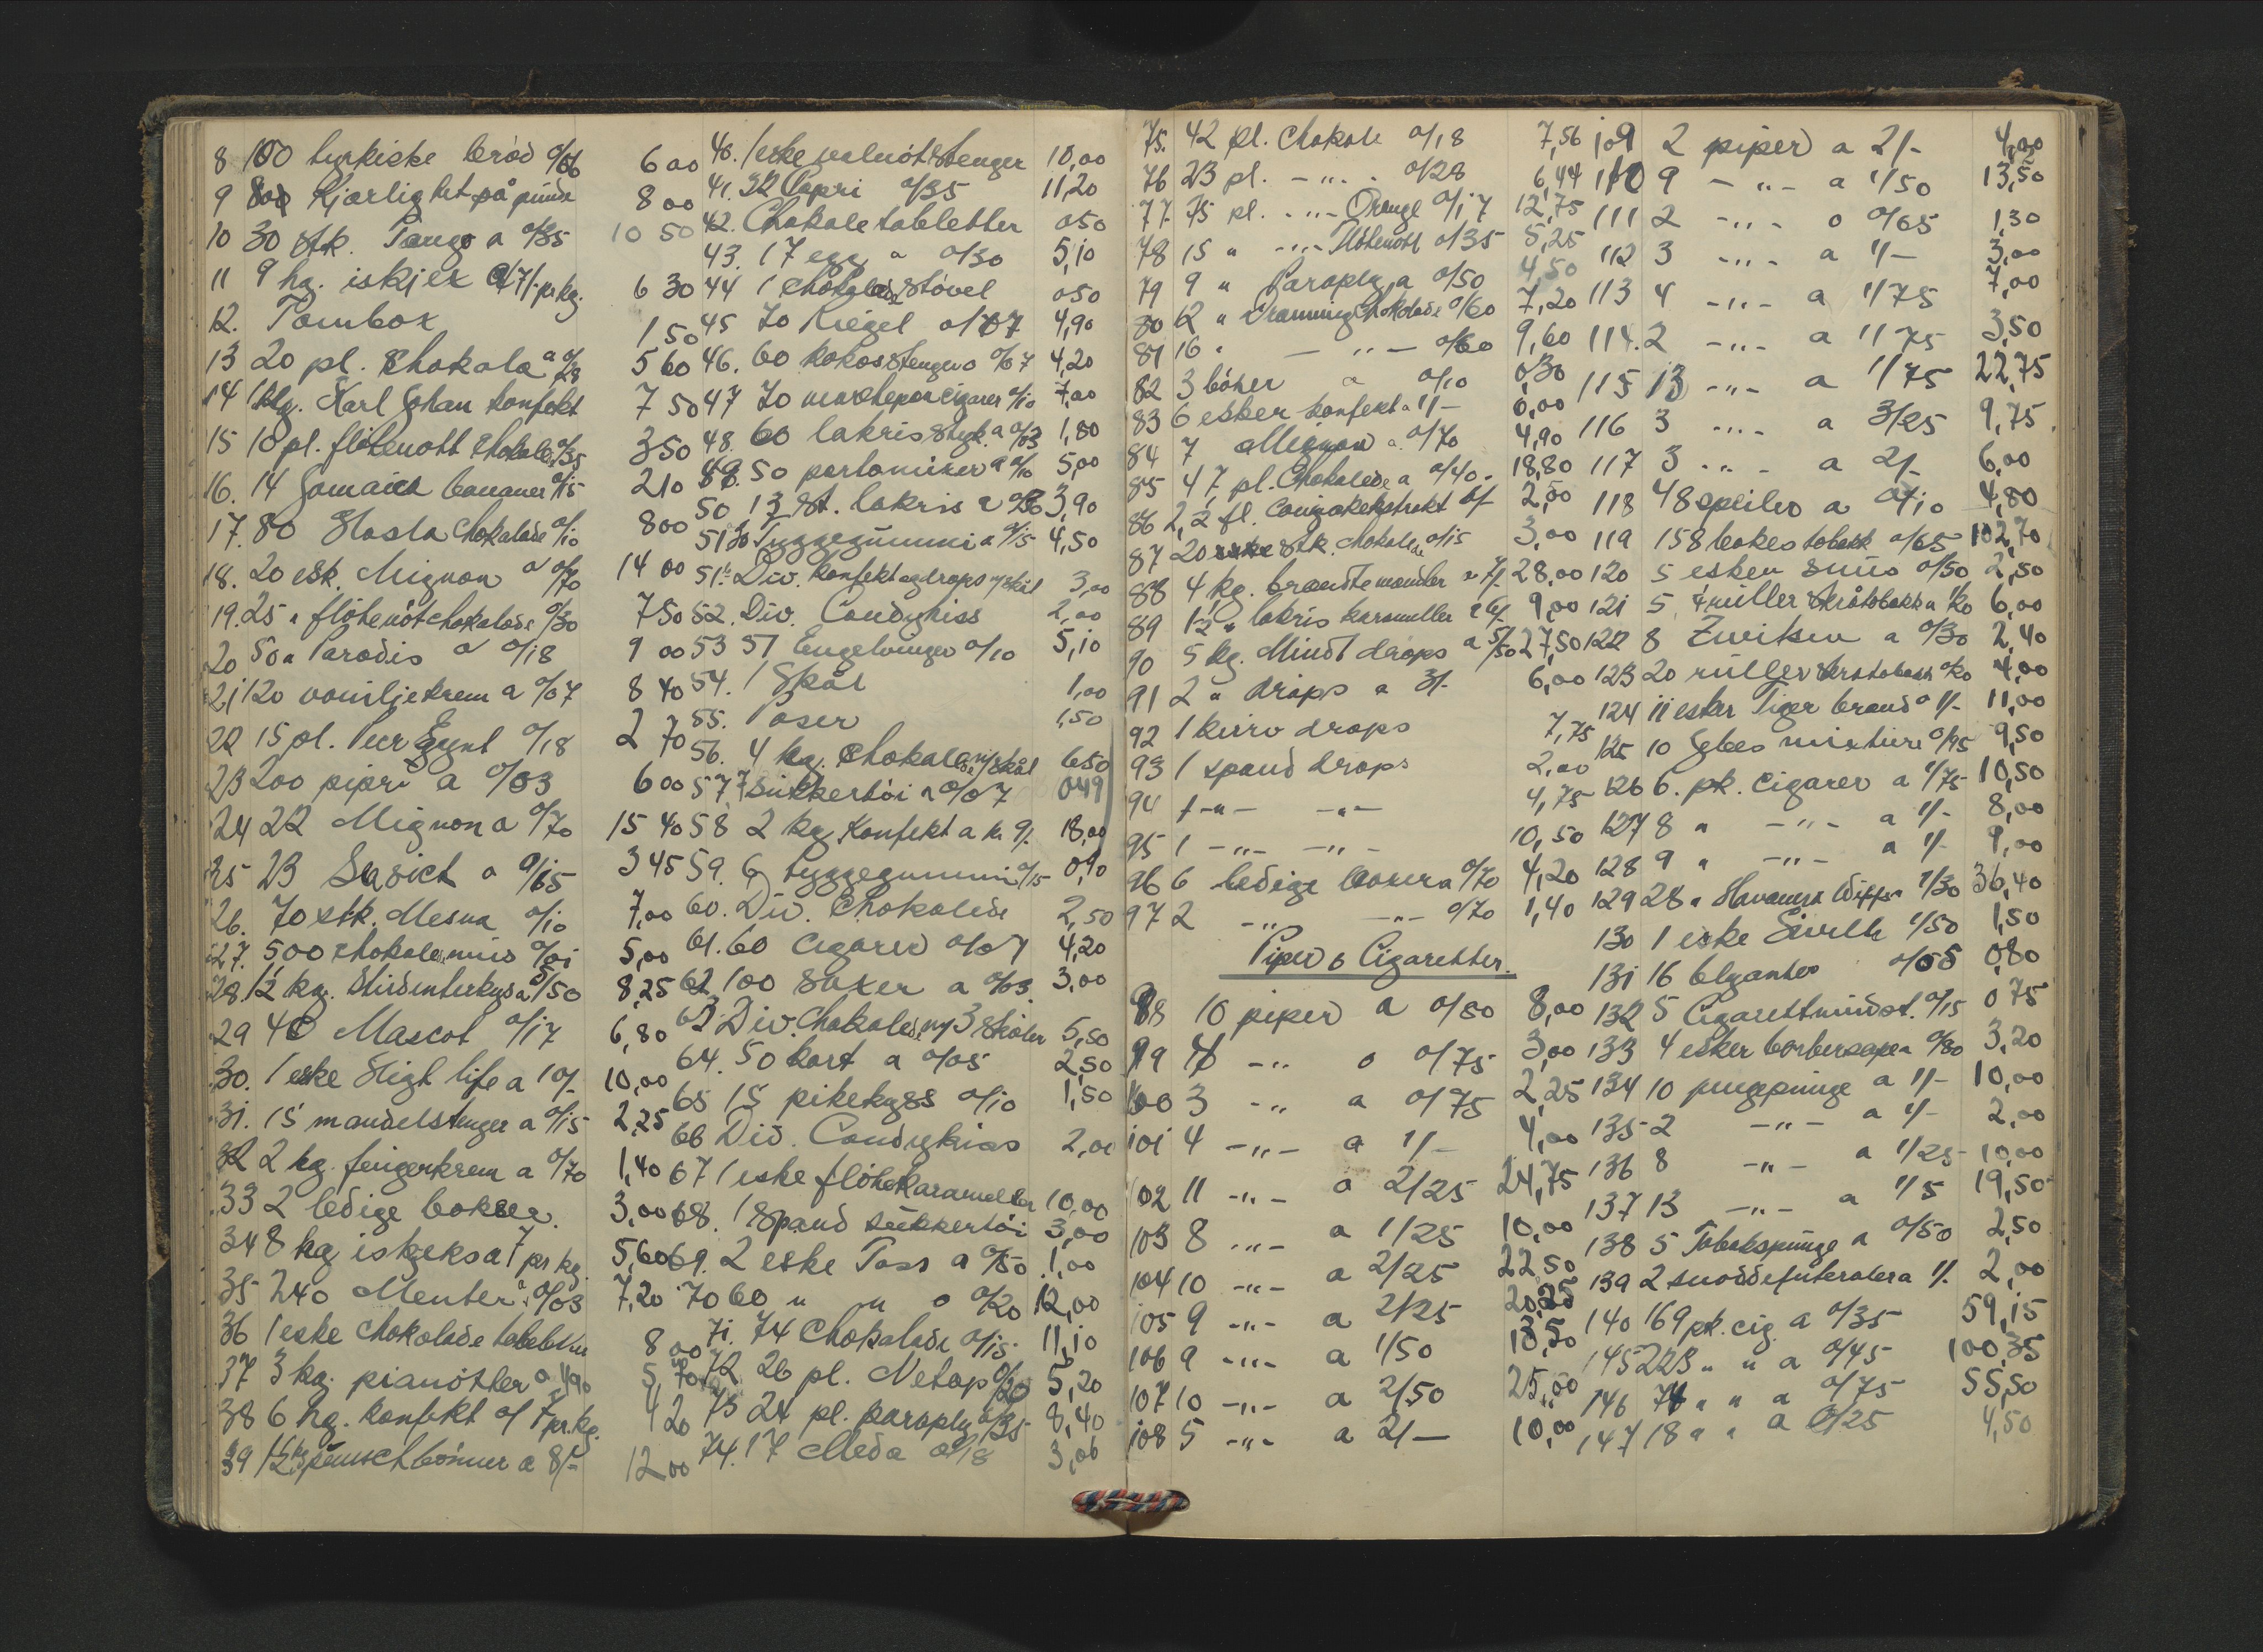 8 100 tyrkiske brød a 0/06 6 00
9 800 Kjærlighet på pinde 8 00
10 30 stk. Tango a 0/35 10 50
11 9 hg. iskjex a 7/- pr kg. 6 30
12. Tombox 1 50
13 20 pl. Chokola a 0/28 5 60
14 1 kg. Karl Johan konfekt 7 50
15 10 pl. fløtenøtt Chokola 0/35 3 50
16. 14 Jamaica bananer 0/15 2 10
17. 80 Hasla Chokolade 0/10 8 00
18. 20 esk. Mignon a 0/70 14 00
19. 25 " fløtenøtchokolade 0/30 7 50
20 50 " Paradis a 0/18 9 00
21 120 vaniljekrem a 0/07 8 40
22 15 pl. Peer Gynt 0/18 2 70
23 200 piper a 0/03 6 00
24 22 Mignon a 0/70 15 40
25 23 a 0/15 3 45
26. 70 stk. Mesna 0/10 7,00
27. 500 chokolademus 0/01 5,00
28. 1 1/2 kg. Studenterkyss a 5/50 8,25
29 40 Mascot 0/17 6,80
30. 1 eske High life a 10/- 10,00
31. 15 mandelstenger a 0/15 2,25
32 2 kg. fingerkrem a 0/70 1,40
33 2 ledige bokser 3,00
34 8 hg iskeks a 7 pr kg. 5,60
35 240 Menter a 0/03 7,20
36 1 eske chokolade tabletter 8 00
37 3 kg. pianøtter a 1/90 5,70
38 6 hg. konfekt a 7 pr. kg. 4 20
39 1 1/2 kg punschbønner a 8/- 12 00
40. 1 eske valnøtstenger 10,00
41. 32 Capri 0/35 11,20
42. Chokoletabletter 0 50
43. 17 egg a 0/30 5,10
44 1 chokoladestøvel 0 50
45 70 Riegel a/07 4,90
46. 60 kokosstenger a 0/07 4,20
47 70 marchepancigarer 0/10 7,00
48. 60 lakrisstyk. a 0/03 1,80
49. 50 portomixer a 0/10 5,00
50 13 st. lakris a 0/30 3,90
51 30 Tyggegummi a 0/15 4,50
51b. Div. konfekt og drops m/skål 3,00
52. Div. Candykiss 2,00
53 51 Engelvinger 0/10 5,10
54. 1 Skål 1,00
55. Poser 1,50
56. 4 kg. Chokolade m/skål 6 50
57 7 sukkertøi a 0/07 0 49
58 2 kg. Konfekt a kr 9/. 18,00
59. 6 tyggegummi 0/15 0,90
60. Div. Chokolade 2,50
61. 60 Cigarer 0/07 4,20
62 100 saxer a 0/03 3,00
63 Div. Chokolade m/ 3 skåler 5,50
64. 50 kort a 0/05 2,50
65 15 pikekyss 0/10 1,50
66 Div. Candykiss 2,00
67 1 eske fløtekarameller 10,00
68. 1 Spand sukkertøi 3,00
69. 2 eske Toss a 0/50 1,00
70 60 " " a 0/20 12,00
71. 74 Chokolade 0/15 11,10
72 26 pl. Netop 0/20 5,20
73 24 pl. paraply 0/35 8,40
74. 17 Meda a 0/18 3,06
75. 42 pl. Chokole 0/18 7,56
76 23 pl. - " - 0/28 6,44
77. 75 pl. - " - Orange 0/17 12,75
78 15 " - " - Fløtenøtt 0/35 5,25
79 9 " Paraply a 0/50 4,50
80 12 " Dronning Chokolade 0/60 7,20
81 16 " - " - 0/60 9,60
82 3 bøker a 0/10 0,30
83 6 esker konfekt a 1/- 6,00
84 7 Mignon a 0/70 4,90
85 47 pl. Chokolade a 0/40. 18,80
86 2 1/2 fl. 2,50
87 20 stk. chokolade 0/15 3,00
88 4 kg. brendtemandler a 7/ 28,00
89 1 1/2 " lakris karameller a 6/. 9,00
90 5 kg. Mindt drops a 5/50 27,50
91 2 " drops a 3/- 6,00
92 1 kurv drops 7,75
93 1 spand drops 2,00
94 1 - " - - " - 4,75
95 1 - " - - " - 10,50
96 6 ledige boxer a 0/70 4,20
97 2 - " - - " - 0/70 1,40
Piper & Cigaretter.
98 10 piper a 0/80 8,00
99 4 - " - a 0/75 3,00
100 3 - " a 0/75 2,25
101 4 - " - a 1/- 4,00
102 11 - " - a 2/25 24,75
103 8 - " - a 1/25 10,00
104 10 - " - a 2/25 22 50
105 9 - " - a 2/25 20,25
106 9 - " - a 1/50 13,50
107 10 - " - a 2/50 25,00
108 5 - " - a 2/- 10,00
109 2 piper a 2/- 4,00
110 9 - " - a 1/50 13,50
111 2 - " - a 0/65 1,30
112 3 - " - a 1/- 3,00
113 4 - " - a 1/75 7,00
114. 2 - " - a 1/75 3,50
115 13 - " - a 1/75 22,75
116 3 - " - a 3/25 9,75
117 3 - " - a 2/- 6,00
118 48 speiler a 0/10 4,80
119 158 bokes tobakk 0/65 102,70
120 5 esker snus 0/50 2,50
121 5 ruller skråtobakk a 1/20 6,00
122 8 a 0/30 2,40
123 20 ruller skråtobakk 0/20 4,00
124 11 esker Tiger brand a 1/- 11,00
125 10 mixture 0/95 9,50
126 6. pk. Cigarer a 1/75 10,50
127 8 " - " - a 1/- 8,00
128 9 " - " - a 1/- 9,00
129 28 " Havanna 1/30 36,40
130 1 eske 1/50 1,50
131 16 blyanter 0/05 0,80
132 5 Cigarettmundst. 0/15 0 75
133 4 esker barbersåpe a 0/80 3,20
134 10 pengepunge a 1/- 10,00
135 2 - " - a 1/- 2,00
136 8 - " - a 1/25 10,00
137 13 - " - a 1/5 19,50
138 5 Tobakspunge a 0/50 2,50
139 2 snaddefuteraler a 1/. 2,00
140 169 pk. cig. a 0/35 59,15
145 223 " " a 0/45 100,35
146 74 " " a 0/75 55,50
147 18 " " a 0/25 4,50